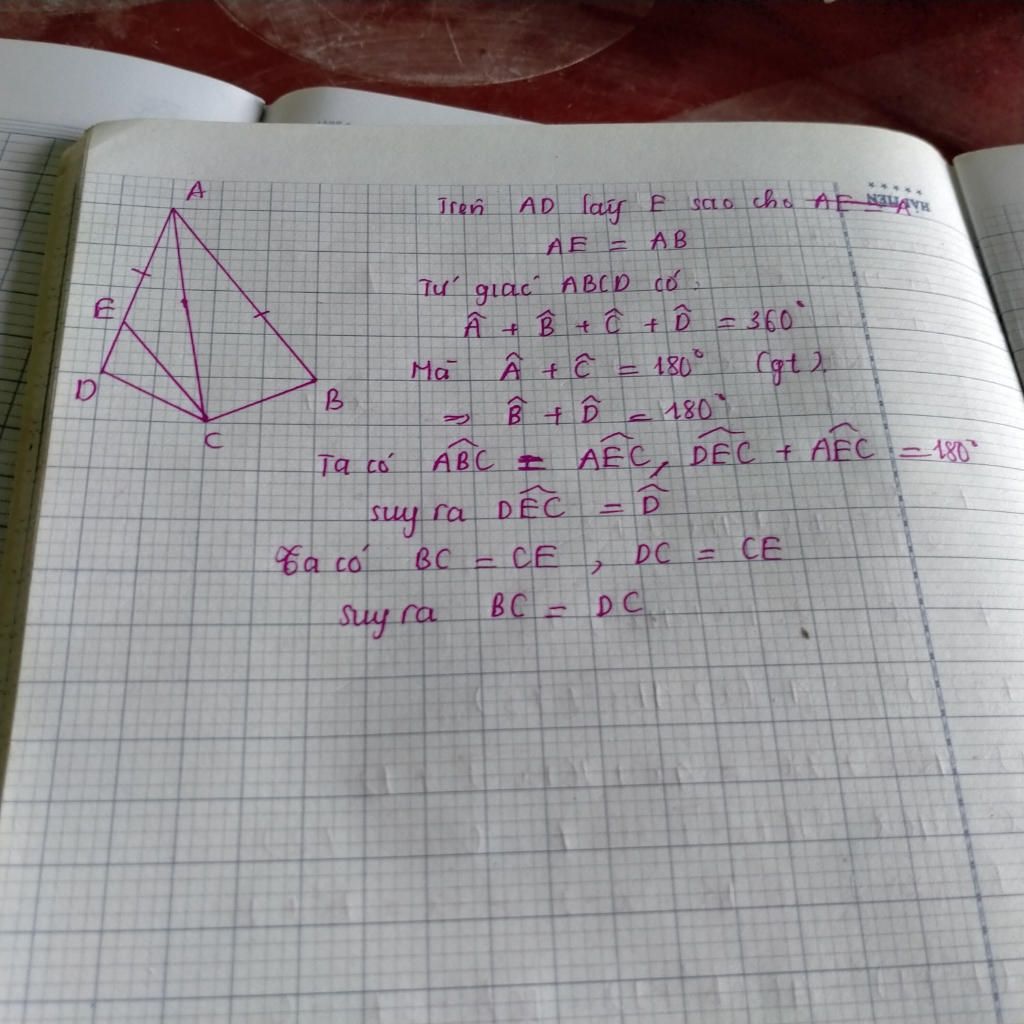 A
E
D
C
B
Trên AD lấy E sao cho AE = A
HẢI TIẾN
AE = AB
Tứ giác ABCD có.
Â + B̂ + Ĉ + D̂ = 360°
Mà Â + Ĉ = 180° (gt).
⇒ B̂ + D̂ = 180°
Ta có \widehat{ABC} = \widehat{AEC}, \widehat{DEC} + \widehat{AEC} = 180°
suy ra \widehat{DEC} = D̂
Ta có BC = CE , DC = CE
suy ra BC = DC